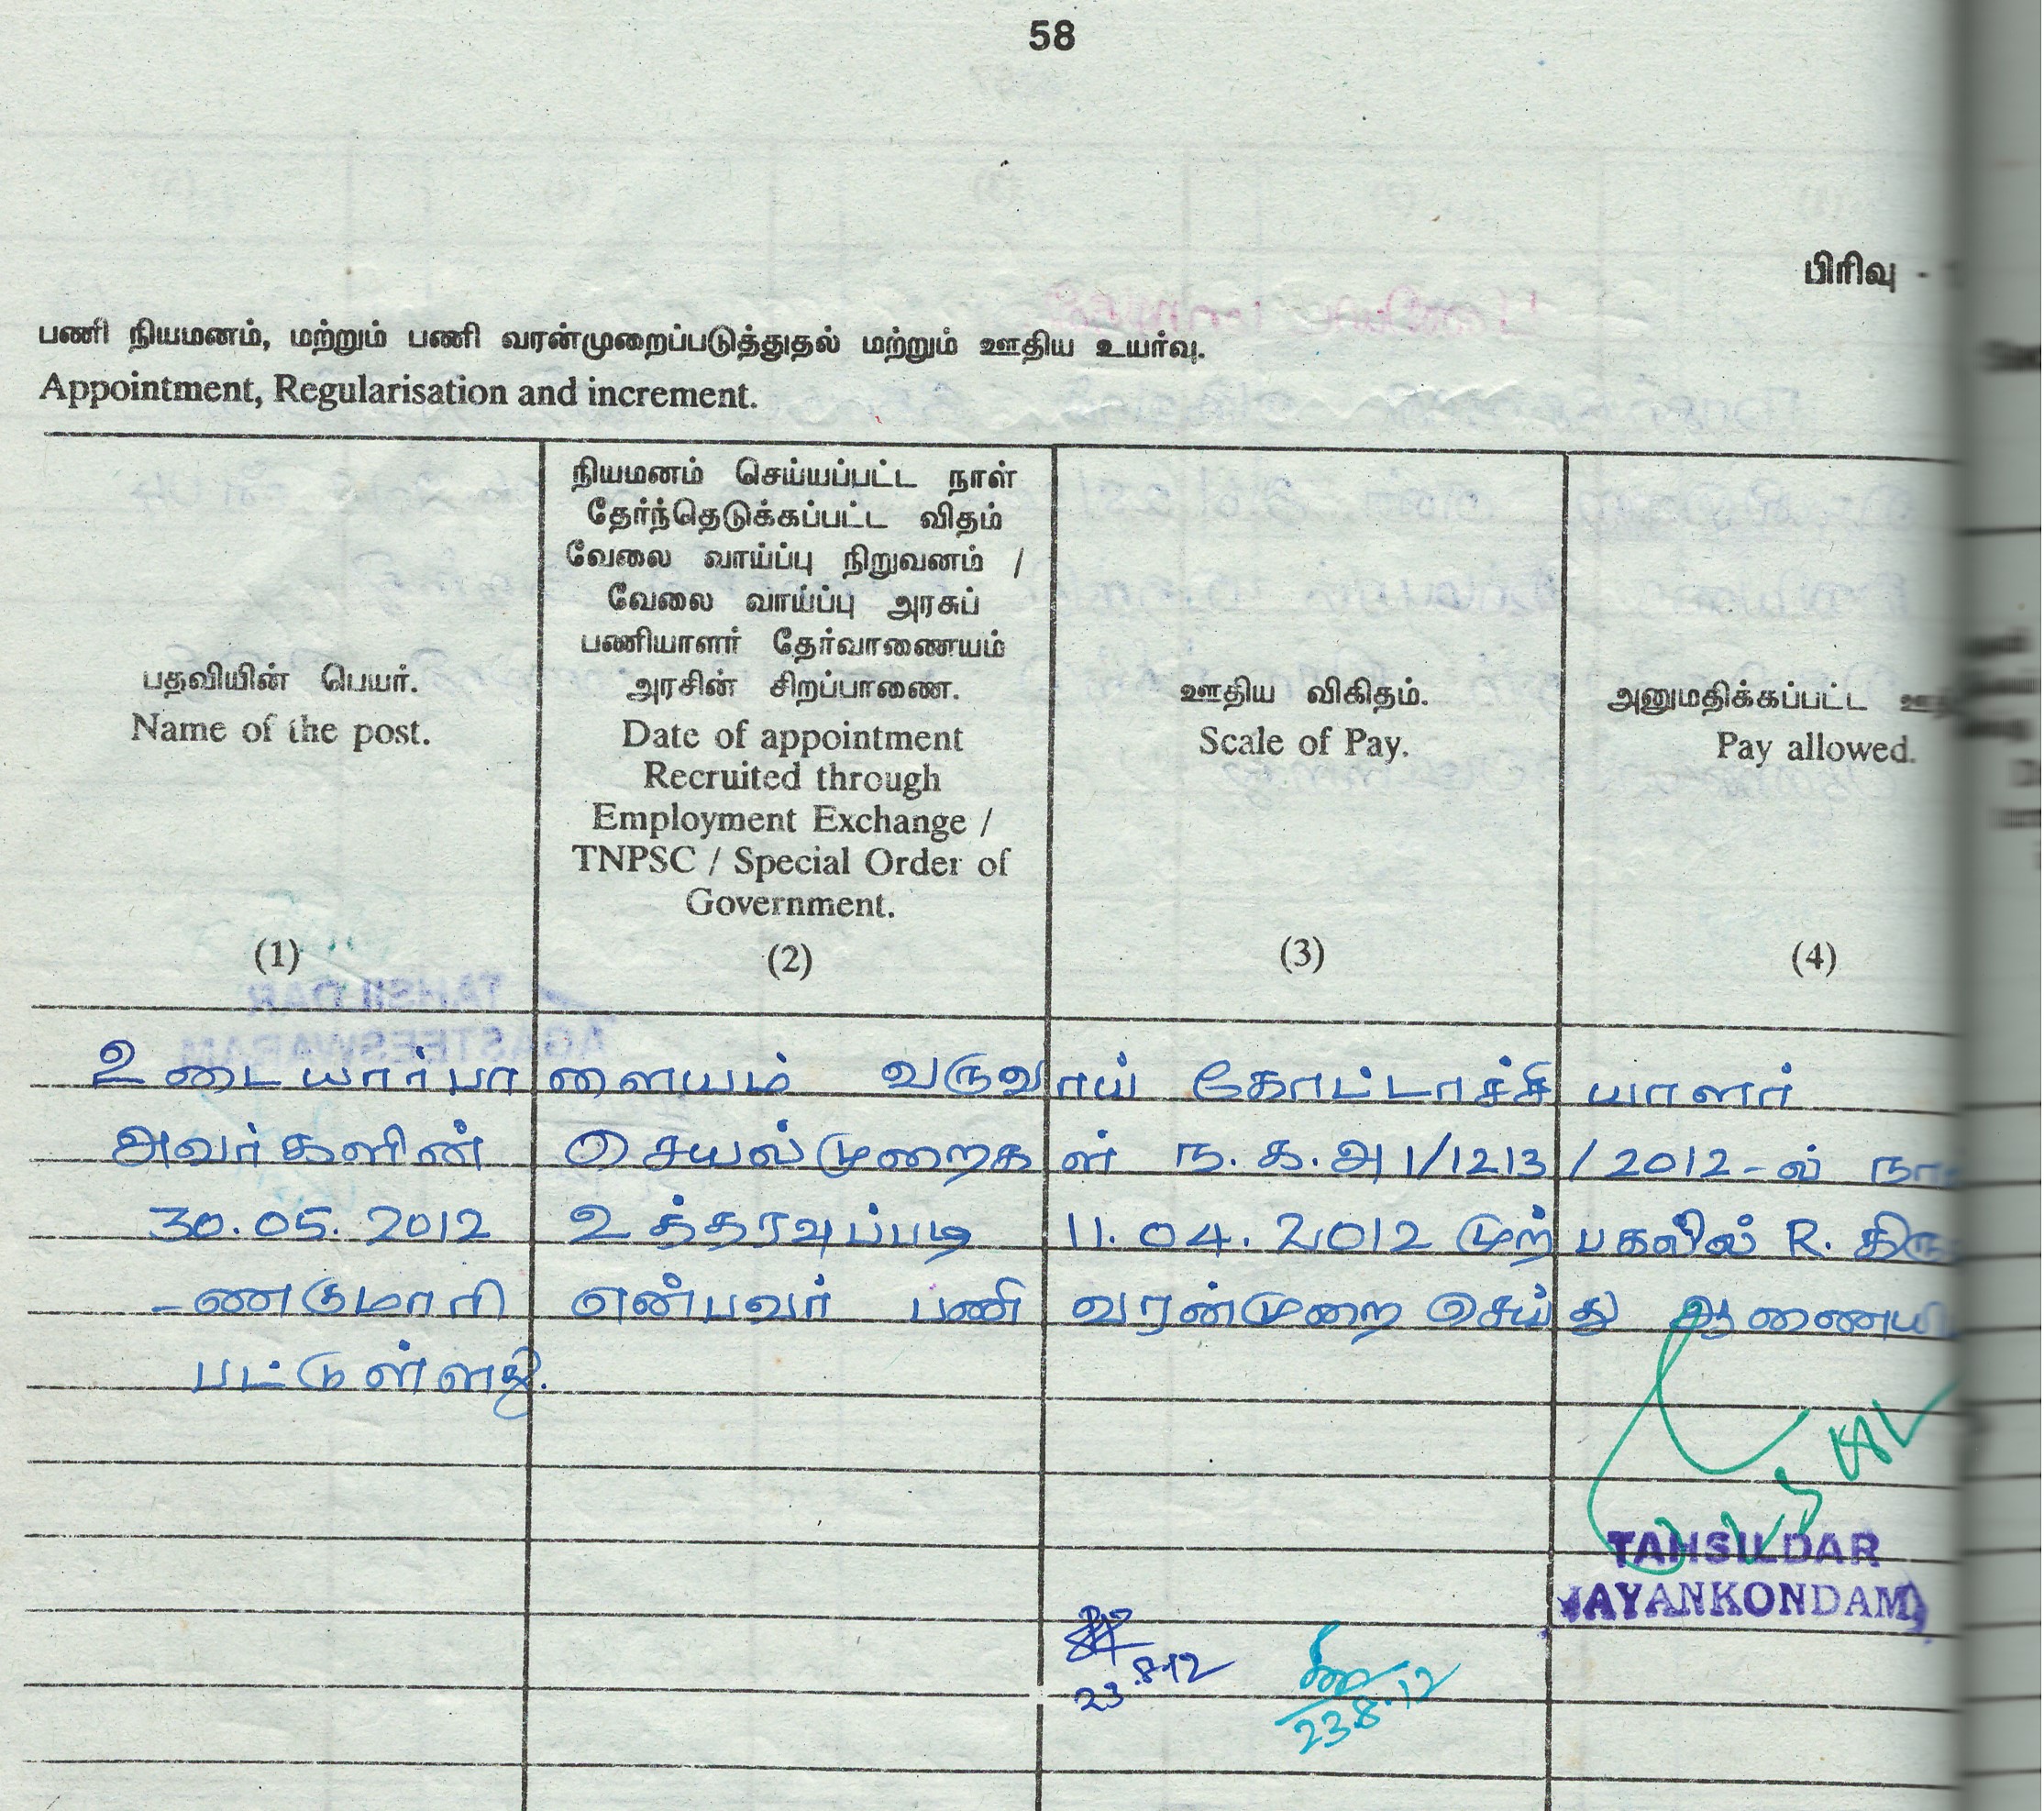 58
பிரிவு -
பணி நியமனம், மற்றும் பணி வரன்முறைப்படுத்துதல் மற்றும் ஊதிய உயர்வு.
Appointment, Regularisation and increment.
பதவியின் பெயர்.
Name of the post.
(1)
நியமனம் செய்யப்பட்ட நாள்
தேர்ந்தெடுக்கப்பட்ட விதம்
வேலை வாய்ப்பு நிறுவனம் /
வேலை வாய்ப்பு அரசுப்
பணியாளர் தேர்வாணையம்
அரசின் சிறப்பாணை.
Date of appointment
Recruited through
Employment Exchange /
TNPSC / Special Order of
Government.
(2)
ஊதிய விகிதம்.
Scale of Pay.
(3)
அனுமதிக்கப்பட்ட
Pay allowed.
(4)
உடையார்பாளையம் வருவாய் கோட்டாச்சியாளர்
அவர்களின் செயல்முறைகள் ந.க.அ1/1213/2012-ல்
30.05.2012 உத்தரவுப்படி 11.04.2012 முற்பகலில் R.
-ணகுமாரி என்பவர் பணி வரன்முறை செய்து
பட்டுள்ளது.
TAHSILDAR
JAYANKONDAM
23.8.12
23.8.12